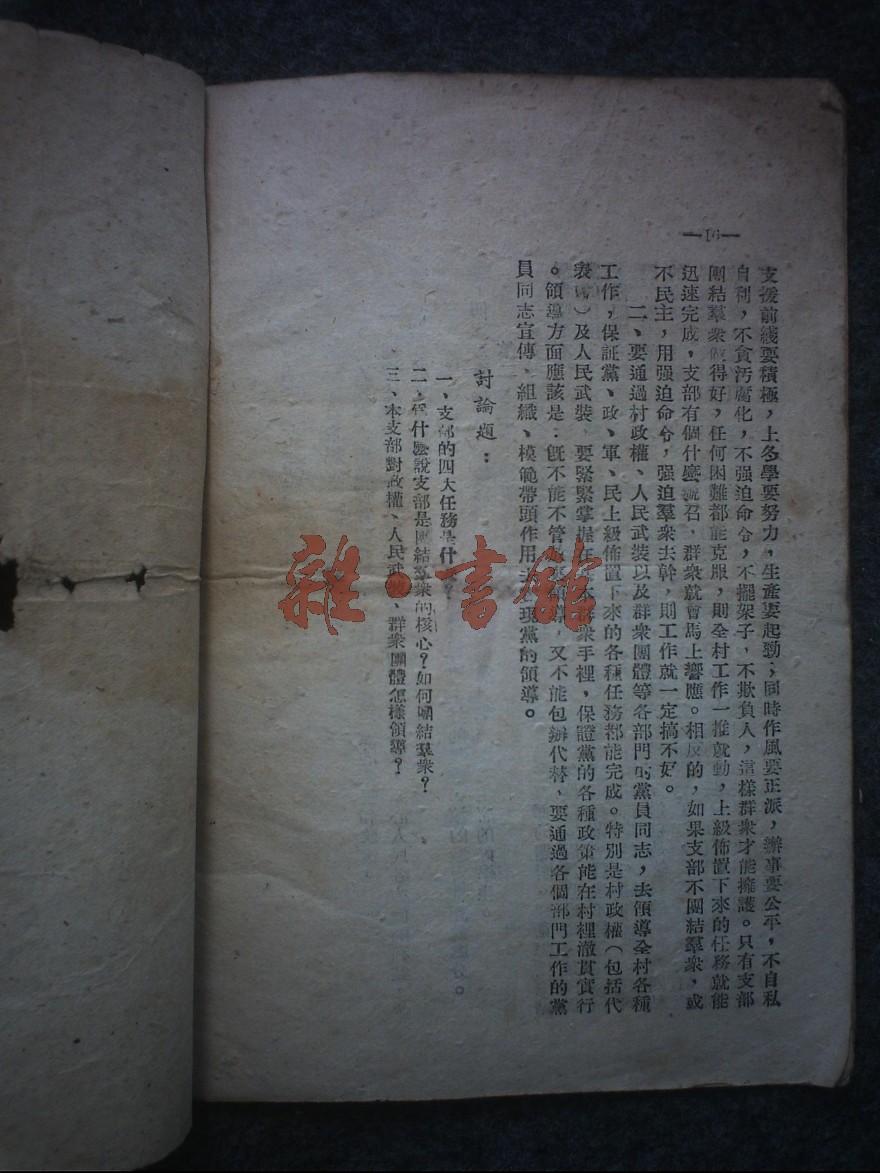 —16—
支援前綫要積極，上冬學要努力，生產要起勁；同時作風要正派，辦事要公平，不自私
自利，不貪汚腐化，不强迫命令，不擺架子，不欺負人，這樣群衆才能擁護。只有支部
團結羣衆做得好，任何困難都能克服，則全村工作一推就動，上級佈置下來的任務就能
迅速完成，支部有個什麽號召，群衆就會馬上響應。相反的，如果支部不團結羣衆，或
不民主，用强迫命令，强迫羣衆去幹，則工作就一定搞不好。
二、要通過村政權、人民武裝以及群衆團體等各部門的黨員同志，去領導全村各種
工作，保証黨、政、軍、民上級佈置下來的各種任務都能完成。特別是村政權（包括代
表會）及人民武裝，要緊緊掌握在基本群衆手裡，保證黨的各種政策能在村裡澈貫實行
。領導方面應該是：旣不能不管，又不能包辦代替，要通過各個部門工作的黨
員同志宣傳、組織、模範帶頭作用去現黨的領導。
討論題：
一、支部的四大任務是什？
二、爲什麽說支部是團結羣衆的核心？如何團結羣衆？
三、本支部對政權、人民武、群衆團體怎樣領導？
雜·書館